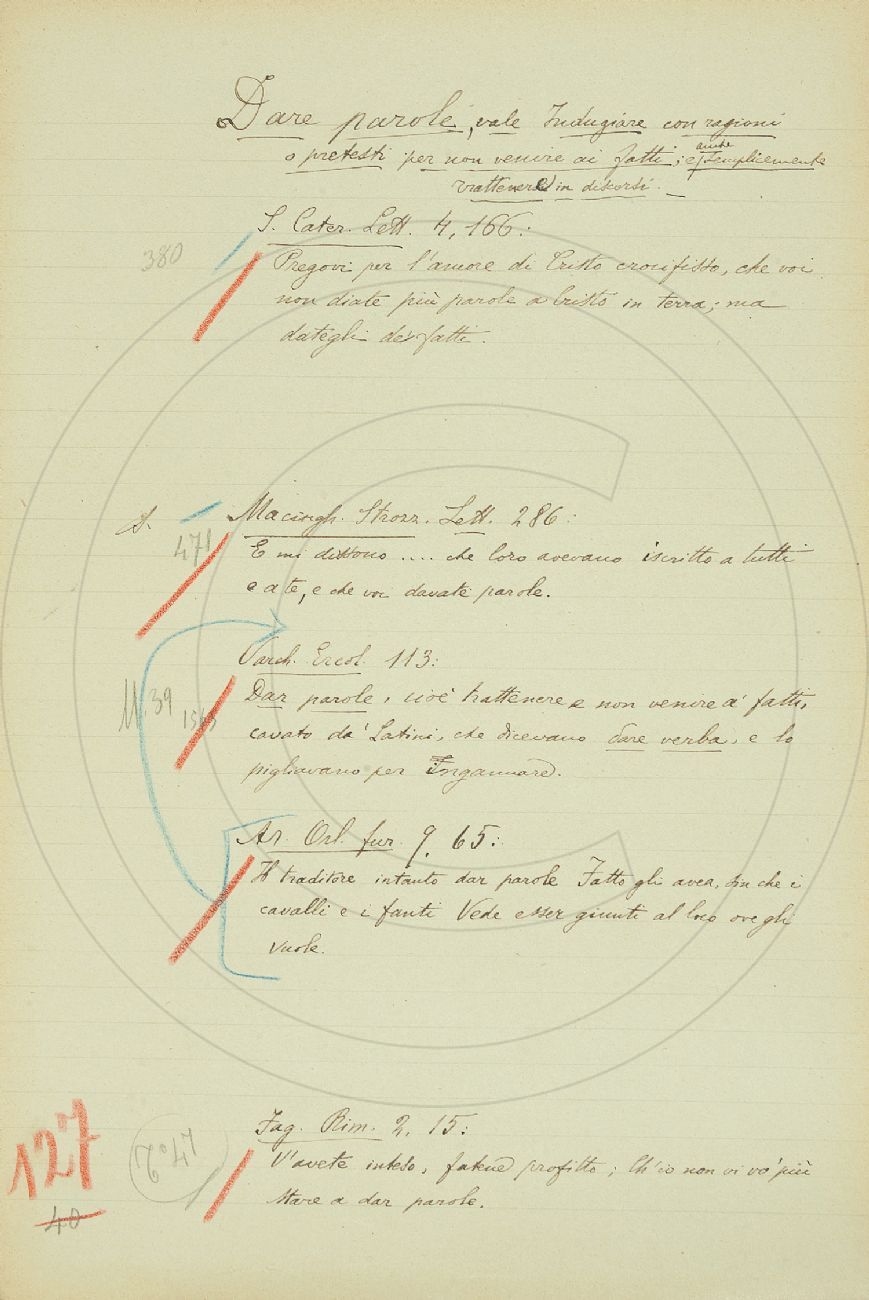 Dare parole, vale Indugiare con ragioni
o pretesti per non venire ai fatti; e anche semplicemente
trattenere in discorsi. _
S. Cater. Lett. 4, 166:
380
Pregovi per l'amore di Cristo crocifisso, che voi
non diate più parole a Cristo in terra; ma
dategli de' fatti.
S.
Macingh. Strozz. Lett. 286:
471
E mi dissono .... che loro avevano iscritto a tutti
e a te, e che voi davate parole.
Varch. Ercol. 113:
39
Dar parole, cioè trattenere e non venire a' fatti,
cavato da' Latini, che dicevano dare verba, e lo
pigliavano per Ingannare.
Ar. Orl. fur. 9. 65:
Il traditore intanto dar parole Fatto gli avea, sin che i
cavalli e i fanti Vede esser giunti al loco ove gli
vuole.
127
40
47
Fag. Rim. 2, 15:
V'avete inteso, fatene profitto; Ch'io non vi vo' più
stare a dar parole.